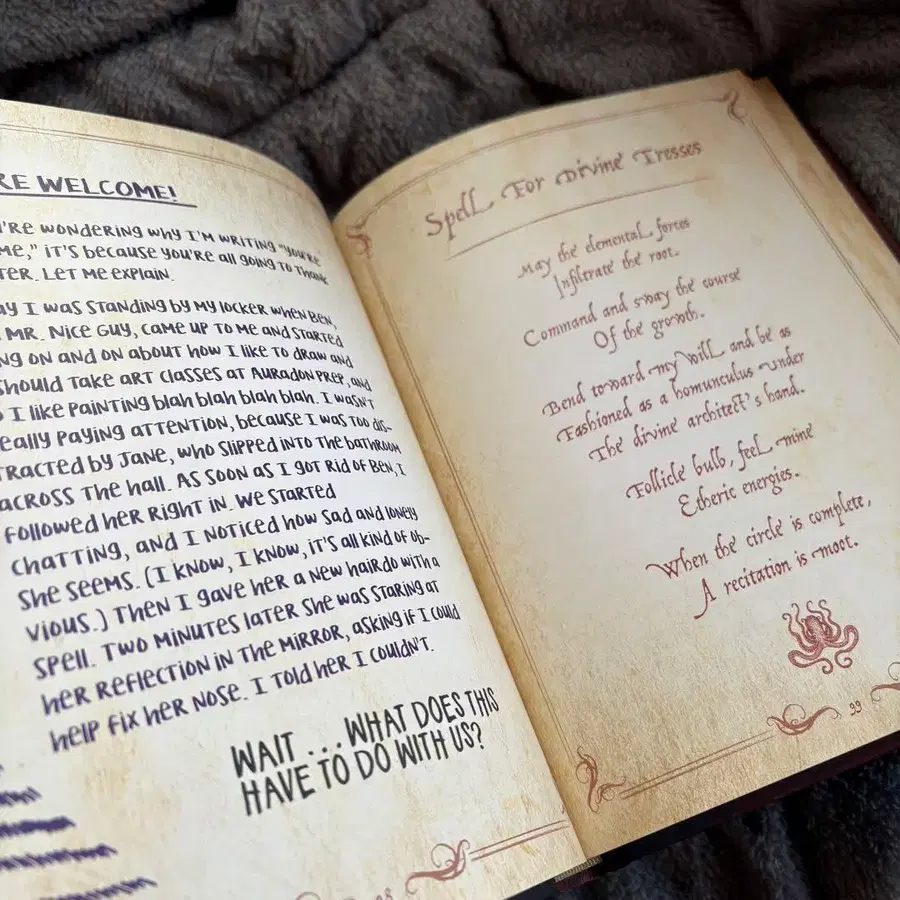 RE WELCOME!
'RE WONDERING WHY I'M WRITING "YOU'RE
ME," IT'S BECAUSE YOU'RE ALL GOING TO THANK
TER. LET ME EXPLAIN.
AY I WAS STANDING BY MY LOCKER WHEN BEN,
MR. NICE GUY, CAME UP TO ME AND STARTED
NG ON AND ON ABOUT HOW I LIKE TO DRAW AND
SHOULD TAKE ART CLASSES AT AURADON PREP, AND
I LIKE PAINTING BLAH BLAH BLAH BLAH. I WASN'T
EALLY PAYING ATTENTION, BECAUSE I WAS TOO DIS-
TRACTED BY JANE, WHO SLIPPED INTO THE BATHROOM
ACROSS THE HALL. AS SOON AS I GOT RID OF BEN, I
FOLLOWED HER RIGHT IN. WE STARTED
CHATTING, AND I NOTICED HOW SAD AND LONELY
SHE SEEMS. (I KNOW, I KNOW, IT'S ALL KIND OF OB-
VIOUS.) THEN I GAVE HER A NEW HAIRDO WITH A
SPELL. TWO MINUTES LATER SHE WAS STARING AT
HER REFLECTION IN THE MIRROR, ASKING IF I COULD
HELP FIX HER NOSE. I TOLD HER I COULDN'T.
WAIT ... WHAT DOES THIS
HAVE TO DO WITH US?
Spell For Divine Tresses
May the elemental forces
Infiltrate the root.
Command and sway the course
Of the growth.
Bend toward my will and be as
Fashioned as a homunculus under
The divine architect's hand.
Follicle bulb, feel mine
Etheric energies.
When the circle is complete,
A recitation is moot.
99